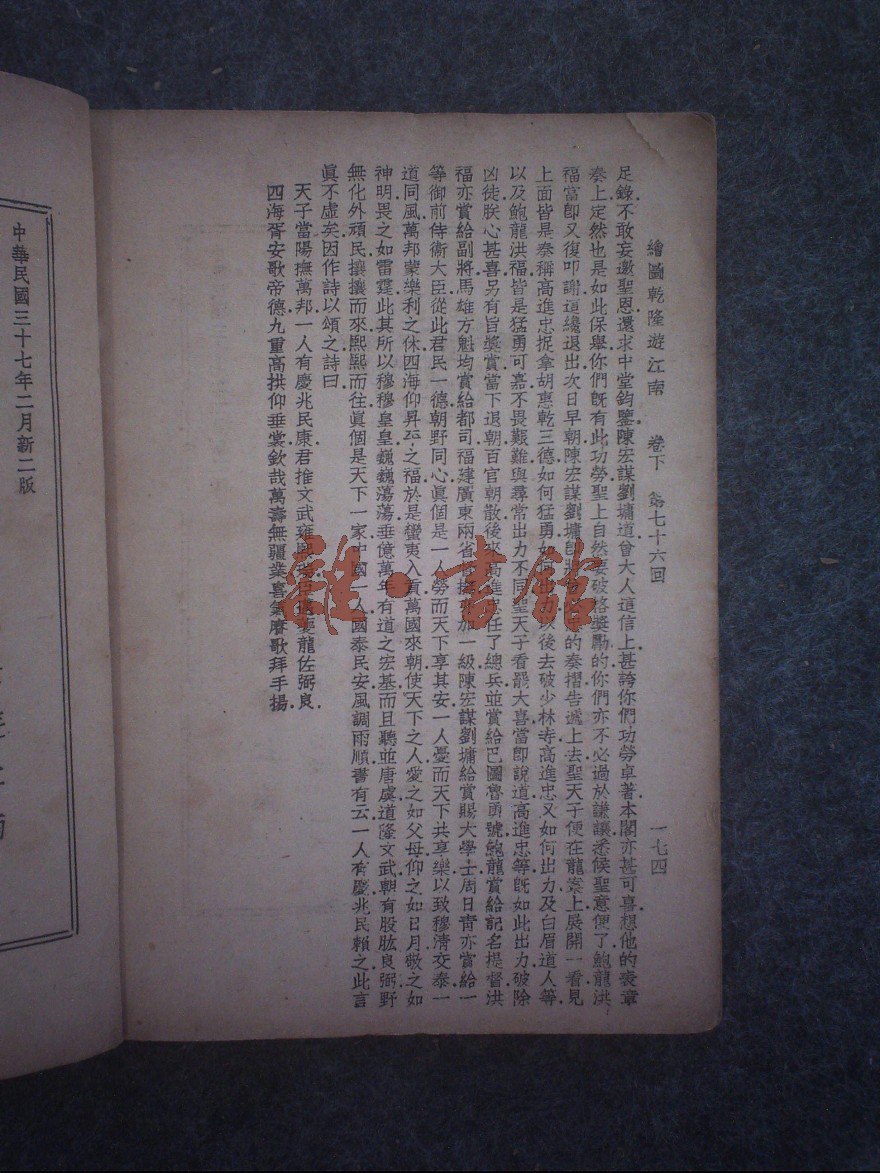 繪圖乾隆遊江南　卷下　第七十六回　一七四
足錄不敢妄邀聖恩還求中堂鈞鑒陳宏謀劉墉道曾大人這信上甚誇你們功勞卓著本閣亦甚可喜想他的表章
奏上定然也是如此保舉你們既有此功勞聖上自然要破格獎勵的你們亦不必過於謙讓悉候聖意便了鮑龍洪
福當卽又復叩謝這纔退出次日早朝陳宏謀劉墉卽將 的奏摺告遞上去聖天子便在龍案上展開一看見
上面皆是奏稱高進忠捉拿胡惠乾三德如何猛勇如何出力以後去破少林寺高進忠又如何出力及白眉道人等
以及鮑龍洪福皆是猛勇可嘉不畏艱難與尋常出力不同聖天子看罷大喜當卽說道高進忠等旣如此出力破除
凶徒朕心甚喜另有旨獎賞當下退朝百官朝散後來高進忠任了總兵並賞給巴圖魯勇號鮑龍賞給記名提督洪
福亦賞給副將馬雄方魁均賞給都司福建廣東兩省督撫亦加一級陳宏謀劉墉給賞賜大學士周日青亦賞給一
等御前侍衞大臣從此君民一德朝野同心眞個是一人勞而天下享其安一人憂而天下共享樂以致穆清交泰一
道同風萬邦蒙樂利之休四海仰昇平之福於是蠻夷入貢萬國來朝使天下之人愛之如父母仰之如日月敬之如
神明畏之如雷霆此其所以穆穆皇皇巍巍蕩蕩垂億萬年有道之宏基而且聽並唐虞道隆文武朝有股肱良弼野
無化外頑民攘攘而來熙熙而往眞個是天下一家中國一人國泰民安風調雨順書有云一人有慶兆民賴之此言
眞不虛矣因作詩以頌之詩曰
天子當陽撫萬邦一人有慶兆民康君推文武雍熙 臣 夔龍佐弼良
四海胥安歌帝德九重高拱仰垂裳欽哉萬壽無疆業喜氣賡歌拜手揚
中華民國三十七年二月新二版
雜·書館